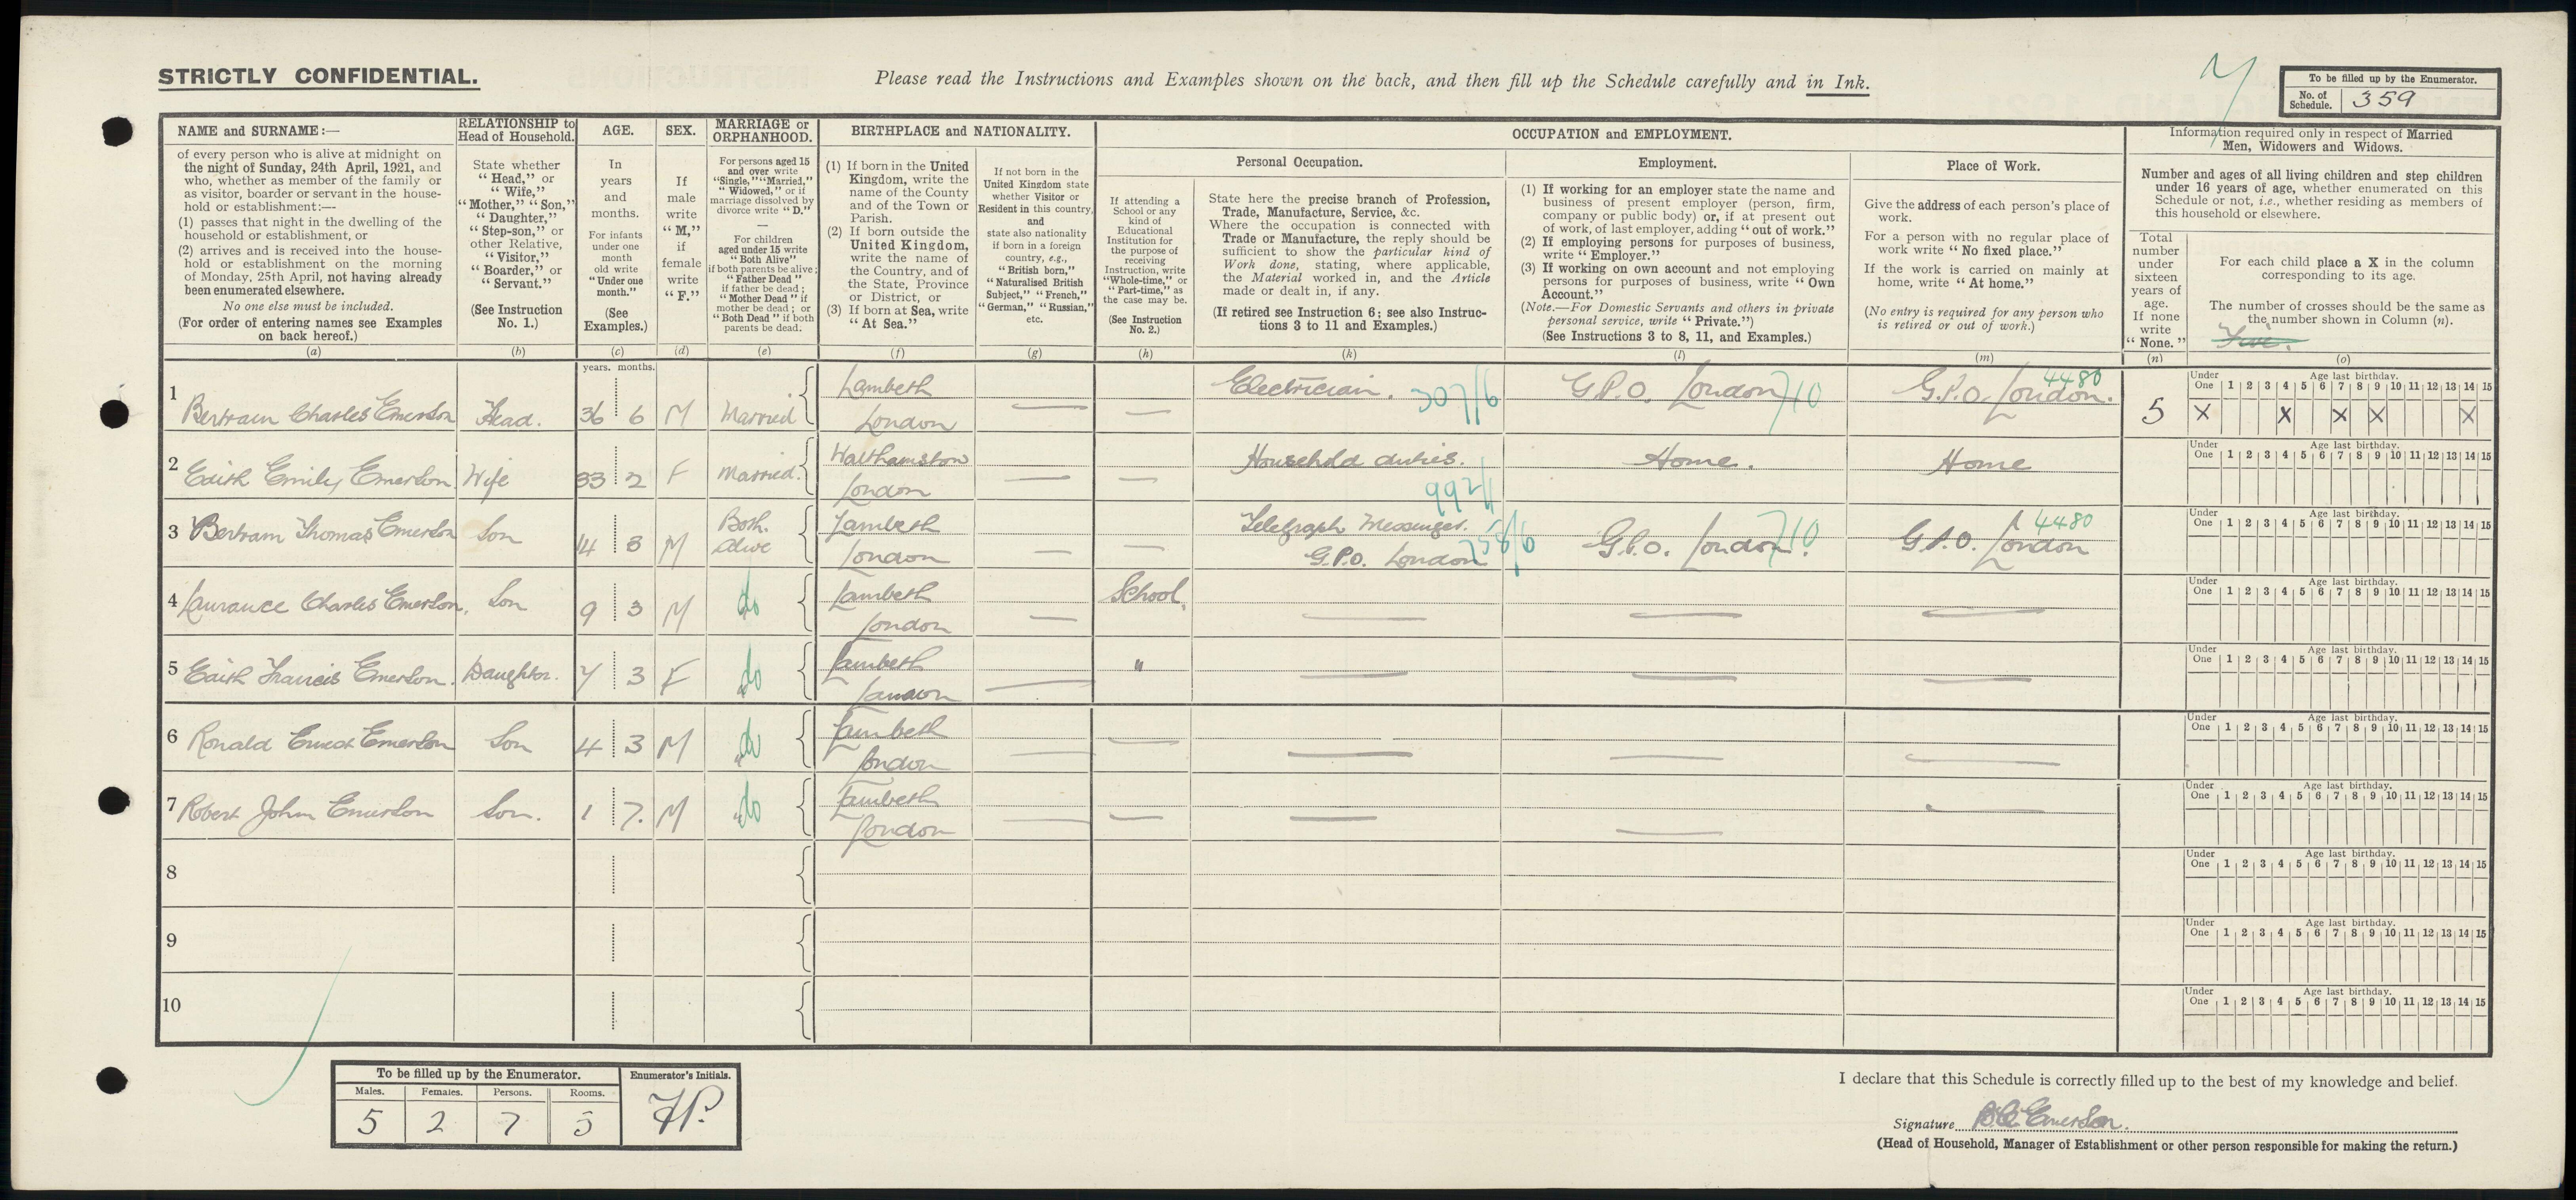 STRICTLY CONFIDENTIAL.
Please read the Instructions and Examples shown on the back, and then fill up the Schedule carefully and in Ink.
To be filled up by the Enumerator.
No. of Schedule. 359
NAME and SURNAME:—
of every person who is alive at midnight on
the night of Sunday, 24th April, 1921, and
who, whether as member of the family or
as visitor, boarder or servant in the house-
hold or establishment:—
(1) passes that night in the dwelling of the
household or establishment, or
(2) arrives and is received into the house-
hold or establishment on the morning
of Monday, 25th April, not having already
been enumerated elsewhere.
No one else must be included.
(For order of entering names see Examples
on back hereof.)
(a)
RELATIONSHIP to
Head of Household.
State whether
"Head," or
"Wife,"
"Mother," "Son,"
"Daughter,"
"Step-son," or
other Relative,
"Visitor,"
"Boarder," or
"Servant."
(See Instruction
No. 1.)
(b)
AGE.
In
years
and
months.
For infants
under one
month
old write
"Under one
month."
(See
Examples.)
(c)
SEX.
If
male
write
"M,"
if
female
write
"F."
(d)
MARRIAGE or
ORPHANHOOD.
For persons aged 15
and over write
"Single," "Married,"
"Widowed," or if
marriage dissolved by
divorce write "D."
For children
aged under 15 write
"Both Alive"
if both parents be alive;
"Father Dead"
if father be dead;
"Mother Dead" if
mother be dead; or
"Both Dead" if both
parents be dead.
(e)
BIRTHPLACE and NATIONALITY.
(1) If born in the United
Kingdom, write the
name of the County
and of the Town or
Parish.
(2) If born outside the
United Kingdom,
write the name of
the Country, and of
the State, Province
or District, or
(3) If born at Sea, write
"At Sea."
(f)
If not born in the
United Kingdom state
whether Visitor or
Resident in this country,
and
state also nationality
if born in a foreign
country, e.g.,
"British born,"
"Naturalised British
Subject," "French,"
"German," "Russian,"
etc.
(g)
OCCUPATION and EMPLOYMENT.
If attending a
School or any
kind of
Educational
Institution for
the purpose of
receiving
Instruction, write
"Whole-time," or
"Part-time," as
the case may be.
(See Instruction
No. 2.)
(h)
Personal Occupation.
State here the precise branch of Profession,
Trade, Manufacture, Service, &c.
Where the occupation is connected with
Trade or Manufacture, the reply should be
sufficient to show the particular kind of
Work done, stating, where applicable,
the Material worked in, and the Article
made or dealt in, if any.
(If retired see Instruction 6; see also Instruc-
tions 3 to 11 and Examples.)
(k)
Employment.
(1) If working for an employer state the name and
business of present employer (person, firm,
company or public body) or, if at present out
of work, of last employer, adding "out of work."
(2) If employing persons for purposes of business,
write "Employer."
(3) If working on own account and not employing
persons for purposes of business, write "Own
Account."
(Note.—For Domestic Servants and others in private
personal service, write "Private.")
(See Instructions 3 to 8, 11, and Examples.)
(l)
Place of Work.
Give the address of each person's place of
work.
For a person with no regular place of
work write "No fixed place."
If the work is carried on mainly at
home, write "At home."
(No entry is required for any person who
is retired or out of work.)
(m)
Information required only in respect of Married
Men, Widowers and Widows.
Number and ages of all living children and step children
under 16 years of age, whether enumerated on this
Schedule or not, i.e., whether residing as members of
this household or elsewhere.
Total
number
under
sixteen
years of
age.
If none
write
"None."
(n)
For each child place a X in the column
corresponding to its age.
The number of crosses should be the same as
the number shown in Column (n).
Five.
(o)
years. months.
Under One Age last birthday. 1 2 3 4 5 6 7 8 9 10 11 12 13 14 15
1 Bertram Charles Emerson Head. 36 6 M Married Lambeth London — — Electrician. 307/6 G.P.O. London 710 G.P.O. London. 4480 5 X X X X X
Under One Age last birthday. 1 2 3 4 5 6 7 8 9 10 11 12 13 14 15
2 Edith Emily Emerson Wife 33 2 F Married. Walthamstow London — — Household duties. Home. Home
Under One Age last birthday. 1 2 3 4 5 6 7 8 9 10 11 12 13 14 15
3 Bertram Thomas Emerson Son 14 3 M Both. Alive Lambeth London — — Telegraph Messenger. G.P.O. London G.P.O. London. 710 G.P.O. London 4480
Under One Age last birthday. 1 2 3 4 5 6 7 8 9 10 11 12 13 14 15
4 Laurance Charles Emerson. Son 9 3 M do Lambeth London — School. — — —
Under One Age last birthday. 1 2 3 4 5 6 7 8 9 10 11 12 13 14 15
5 Edith Francis Emerson. Daughter. 7 3 F do Lambeth London — " — — —
Under One Age last birthday. 1 2 3 4 5 6 7 8 9 10 11 12 13 14 15
6 Ronald Emerson Son 4 3 M do Lambeth London — — — — —
Under One Age last birthday. 1 2 3 4 5 6 7 8 9 10 11 12 13 14 15
7 Robert John Emerson Son. 1 7. M do Lambeth London — — — — —
Under One Age last birthday. 1 2 3 4 5 6 7 8 9 10 11 12 13 14 15
8
Under One Age last birthday. 1 2 3 4 5 6 7 8 9 10 11 12 13 14 15
9
Under One Age last birthday. 1 2 3 4 5 6 7 8 9 10 11 12 13 14 15
10
Under One Age last birthday. 1 2 3 4 5 6 7 8 9 10 11 12 13 14 15
To be filled up by the Enumerator.
Males. Females. Persons. Rooms.
5 2 7 5
Enumerator's Initials.
I declare that this Schedule is correctly filled up to the best of my knowledge and belief.
Signature B.C. Emerson.
(Head of Household, Manager of Establishment or other person responsible for making the return.)